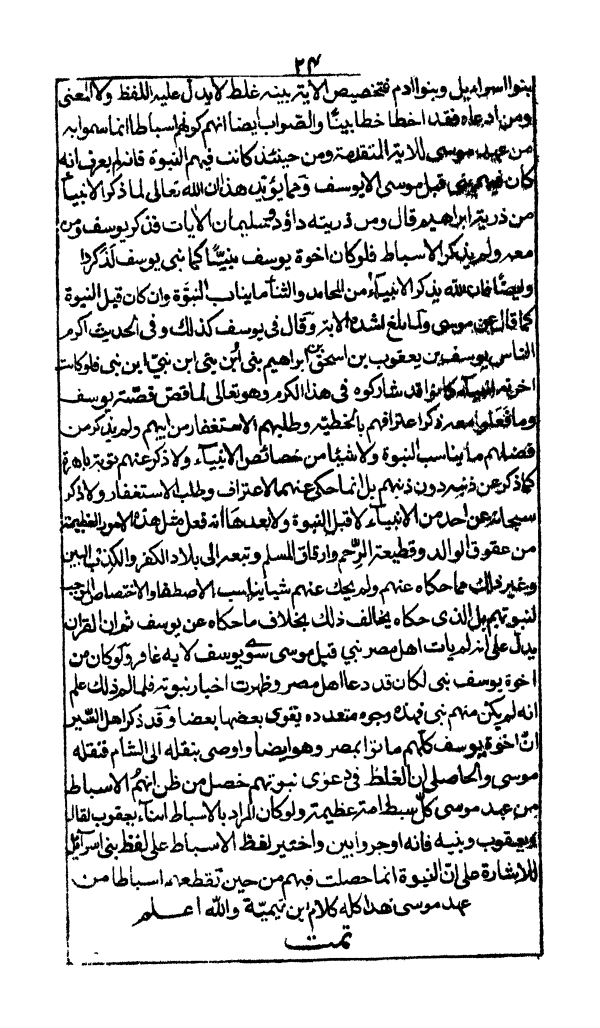 ٢٤
بنوا اسرائيل وبنوا ادم فتخصيص الاية ببنيه غلط لا يدل عليه اللفظ ولا المعنى
ومن ادعاه فقد اخطا خطا بينا والصواب ايضا انهم كونهم اسباطا انما سموا به
من عهد موسى للاية المتقدمة ومن حينئذ كانت فيهم النبوة فانه لم يعرف انه
كان فيهم نبي قبل موسى الا يوسف ومما يؤيد هذا ان الله تعالى لما ذكر الانبياء
من ذرية ابراهيم قال ومن ذريته داؤد وسليمان الايات فذكر يوسف ومن
معه ولم يذكر الاسباط فلو كان اخوة يوسف نبئوا كما نبي يوسف لذكروا
وايضا فان الله يذكر الانبياء من المحامد والثناء ما يناسب النبوة وان كان قبل النبوة
كما قال عن موسى ولما بلغ اشده الاية وقال في يوسف كذلك وفي الحديث اكرم
الناس يوسف بن يعقوب بن اسحق بن ابراهيم نبي ابن نبي ابن نبي ابن نبي فلو كانت
اخوته انبياء كانوا قد شاركوه في هذا الكرم وهو تعالى لما قص قصة يوسف
وما فعلوا معه ذكر اعترافهم بالخطيئة وطلبهم الاستغفار من ابيهم ولم يذكر من
فضلهم ما يناسب النبوة ولا شيئا من خصائص الانبياء ولا ذكر عنهم توبة باهرة
كما ذكر عن ذنبه دون ذنبهم بل انما حكى عنهم الاعتراف وطلب الاستغفار ولا ذكر
سبحانه عن احد من الانبياء لا قبل النبوة ولا بعدها انه فعل مثل هذه الامور العظيمة
من عقوق الوالد وقطيعة الرحم وارقاق المسلم وبيعه الى بلاد الكفر والكذب البين
وغير ذلك مما حكاه عنهم ولم يحك عنهم شيأ يناسب الاصطفا والاختصاص الموجب
لنبوتهم بل الذى حكاه يخالف ذلك بخلاف ما حكاه عن يوسف ثم ان القران
يدل على انه لم يات اهل مصر نبي قبل موسى سوى يوسف لاية غافر ولو كان من
اخوة يوسف نبي لكان قد دعا اهل مصر وظهرت اخبار نبوته فلما لم ذلك علم
انه لم يكن منهم نبي فهذه وجوه متعدده يقوى بعضها بعضا وقد ذكر اهل السير
ان اخوة يوسف كلهم ماتوا بمصر وهو ايضا واوصى بنقله الى الشام فنقله
موسى والحاصل ان الغلط في دعوى نبوتهم حصل من ظن انهم الاسباط
من عهد موسى كل سبط امة عظيمة ولو كان المراد بالاسباط ابناء يعقوب لقال
ويعقوب وبنيه فانه اوجز وابين واختير لفظ الاسباط على لفظ بنى اسرائيل
للاشارة على ان النبوة انما حصلت فيهم من حين تقطعهم اسباطا من
عهد موسى هذا كله كلام ابن تيمية والله اعلم
تمت